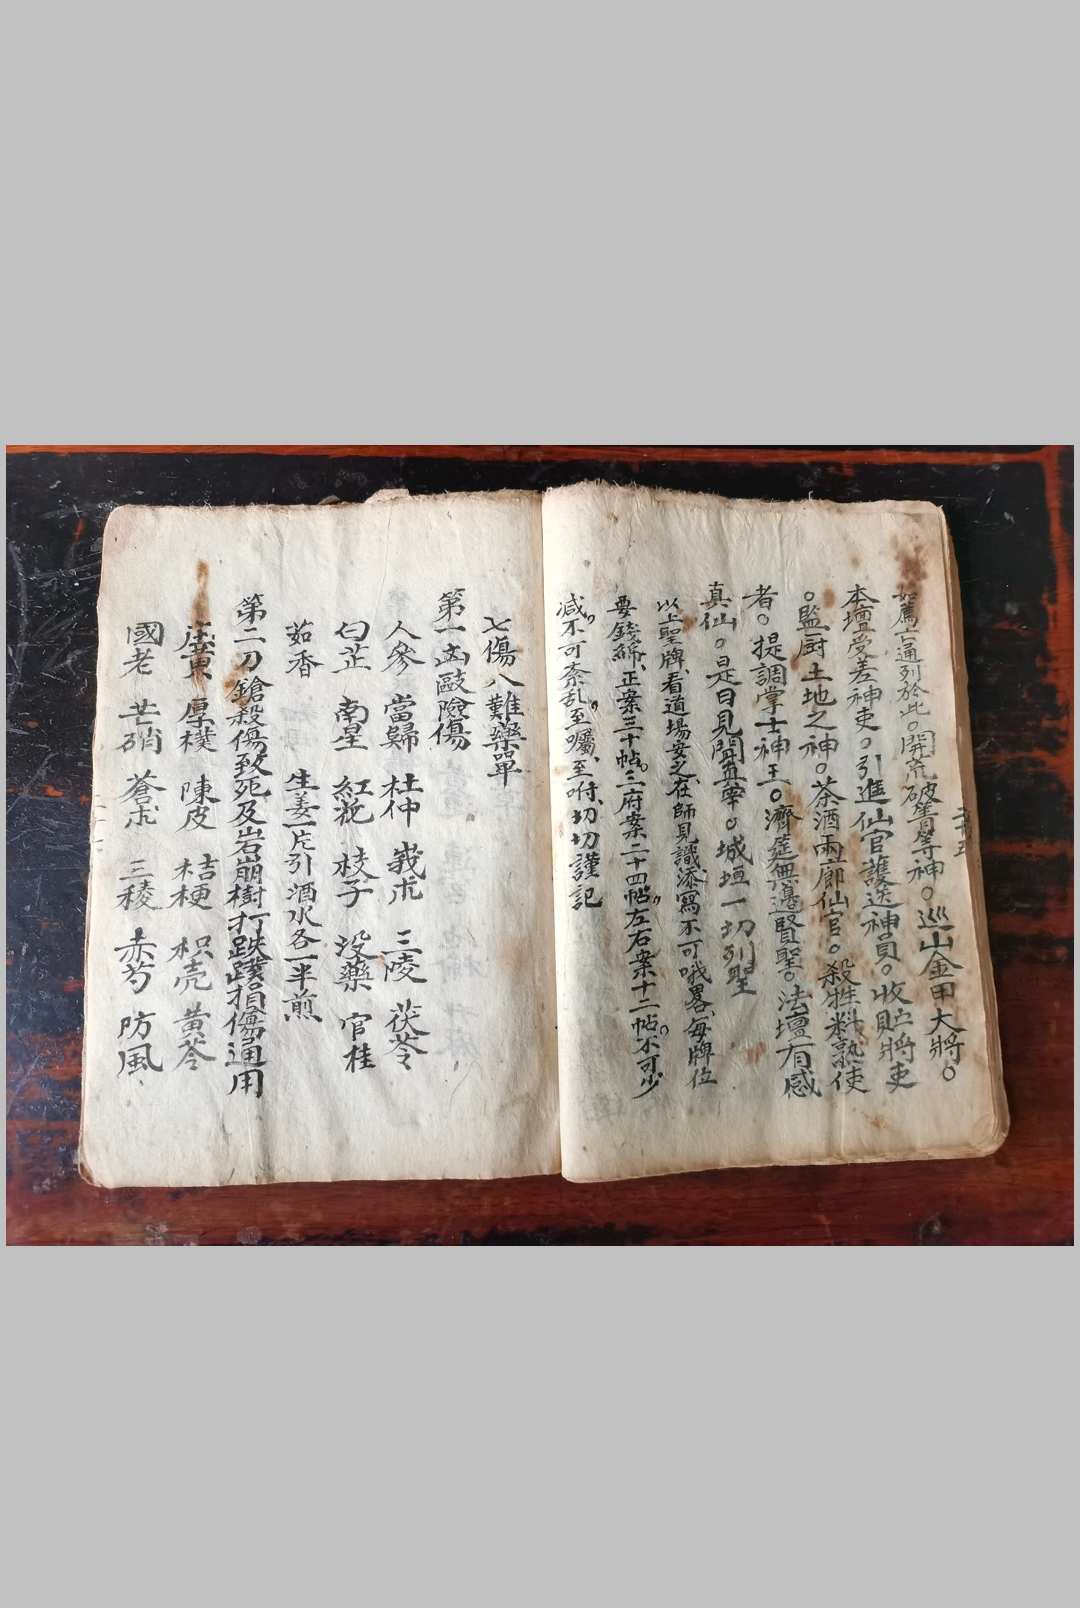 如薦亡通列於此。開荒破膋等神。巡山金甲大將。
本壇受差神吏。引進仙官護送神員。收貯將吏
。監厨土地之神。茶酒兩廊仙官。殺牲料熟使
者。提調掌士神王。濟筵無邊賢聖。法壇有感
真仙。是日見聞真宰。城垣一切列聖
以上聖牌、看道場安之、在師見識添寫不可哦畧、每牌位
要錢綿、正案三十帖。三府案二十四帖。左右案十二帖。不可少
减。不可紊乱。至囑、至咐、切切謹記
七傷八難藥單
第一凶毆險傷
人參 當歸 杜仲 莪朮 三陵 茯苓
白芷 南星 紅花 枝子 没藥 官桂
茹香 生姜一片引酒水各一半煎
第二刀鎗殺傷致死及岩崩樹打跌蹼損傷通用
厚樸 陳皮 桔梗 枳壳 黄苓
國老 芒硝 蒼朮 三稜 赤芍 防風